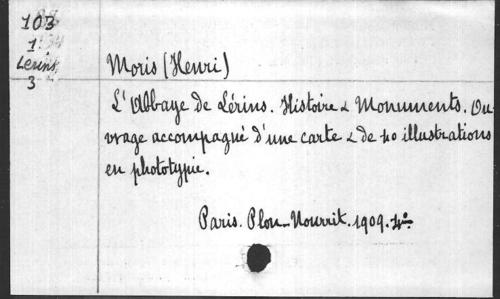 103
1
Lerins
3
Moris (Henri)
L'Abbaye de Lérins. Histoire & Monuments. Ou-
vrage accompagné d'une carte & de 40 illustrations
en phototypie.
Paris. Plon-Nourrit. 1909. 4°